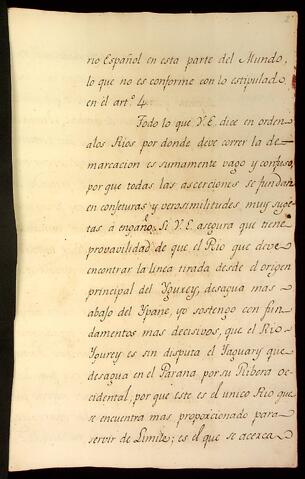 2
rio Español en esta parte del Mundo,
lo que no es conforme con lo estipulado
en él art.º 4.
Todo lo que V.E. dice en orden
alos Rios por donde deve correr la de-
marcacion es sumamente vago y confuso,
por que todas las aserciones se fundan
en confeturas y verosimilitudes, muy suge-
tas á engaño. Si V.E. asegura que tiene
provavilidad de que el Rio que deve
encontrar la linea tirada desde el origen
principal del Ygurey, desagua mas
abajo del Ypane, yo sostengo con fun-
damentos mas decisivos, que el Rio
Ygurey es sin disputa el Yaguary que
desagua en el Paraná por su Ribera oc-
cidental, por que este es el unico Rio que
se encuentra mas proporcionado para
servir de Limite; es el que se acerca